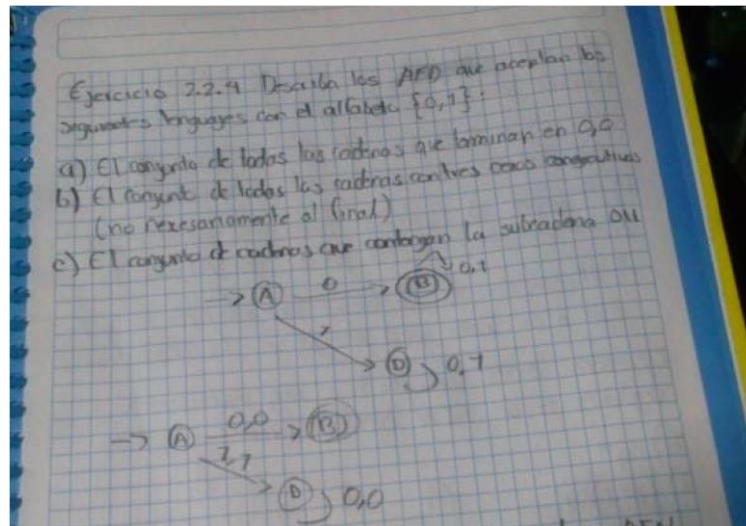 Ejercicio 2.2.4 Describa los AFD que aceptan los
siguientes lenguages con el alfabeto {0,1}:
a) El conjunto de todas las cadenas que terminan en 0,0
b) El conjunto de todas las cadenas con tres ceros consecutivos
(no nexesariamente al final)
c) El conjunto de cadenas que contengan la subcadena 011
A 0 B 0,1
1
D 0,1
A 0,0 B
1,1
D 0,0